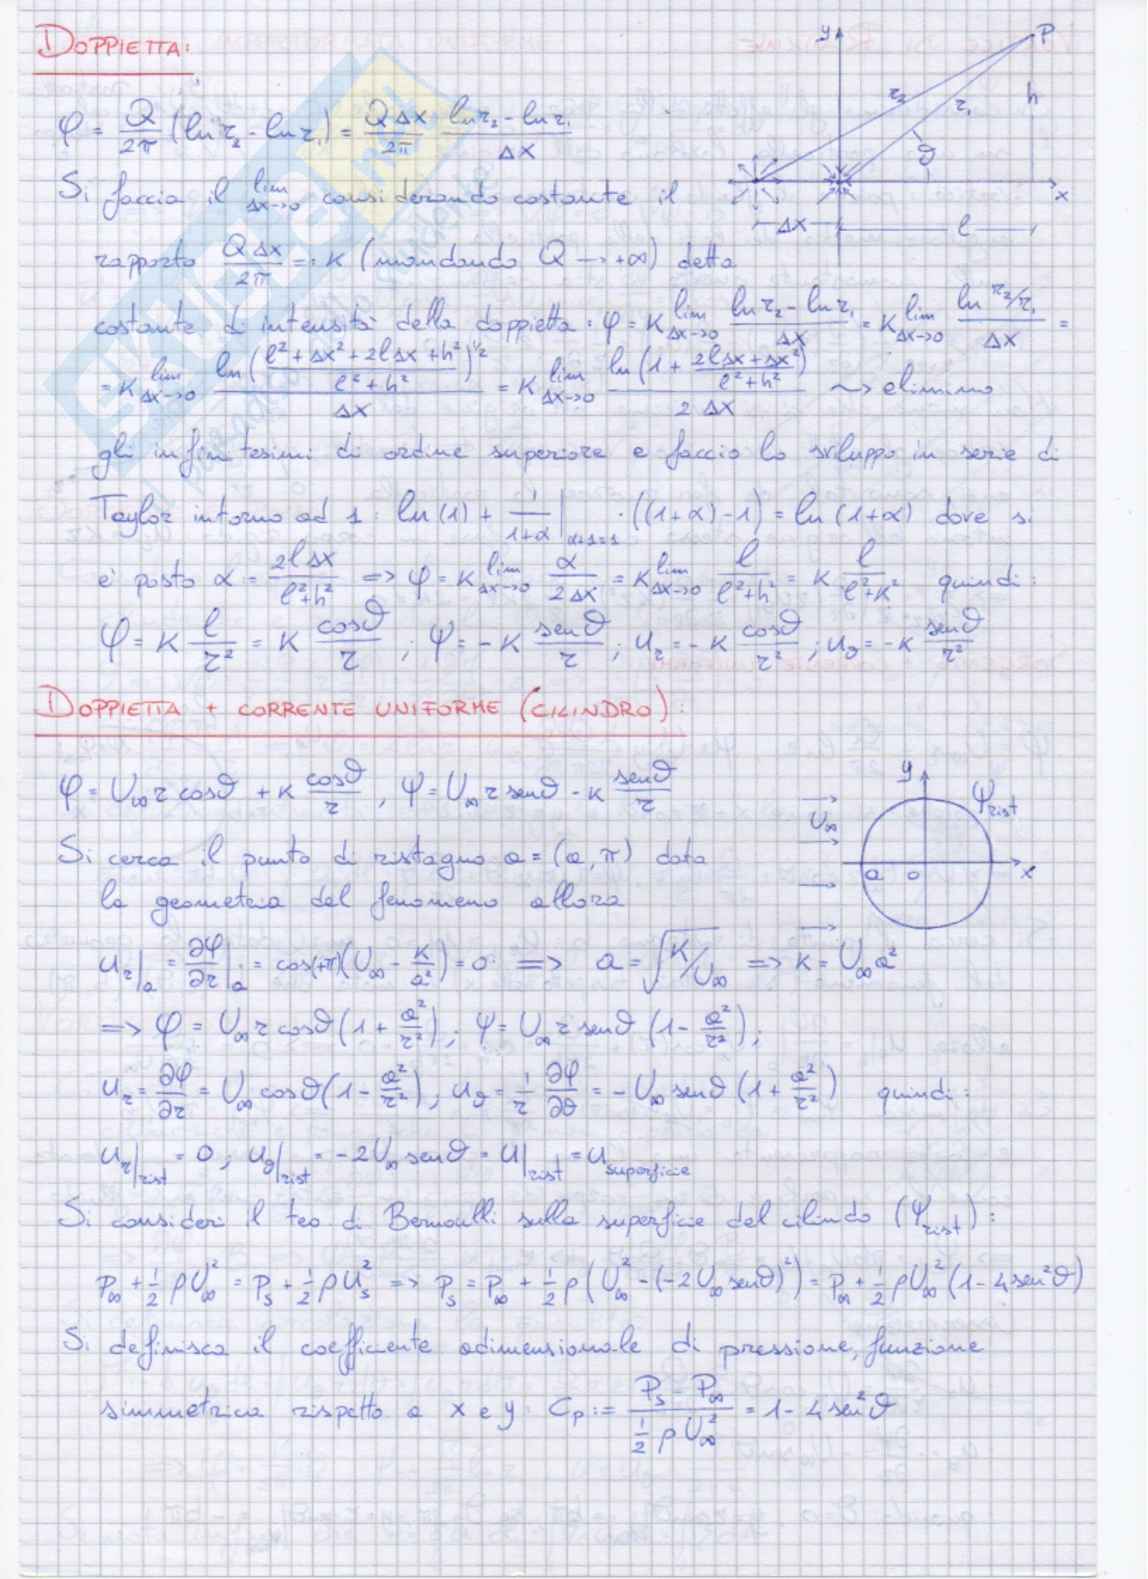 DOPPIETTA:
y P
r₂ r₁ h
ϑ
x
Δx l
φ = Q/2π (ln r₂ - ln r₁) = QΔx/2π · (ln r₂ - ln r₁)/Δx
Si faccia il lim Δx→0 considerando costante il
rapporto QΔx/2π =: K (mandando Q → +∞) detta
costante di intensità della doppietta: φ = K lim Δx→0 (ln r₂ - ln r₁)/Δx = K lim Δx→0 (ln r₂/r₁)/Δx =
= K lim Δx→0 ln((l² + Δx² + 2lΔx + h²)/(l² + h²))^½ / Δx = K lim Δx→0 ln(1 + (2lΔx + Δx²)/(l² + h²)) / 2Δx ⇝ elimino
gli infinitesimi di ordine superiore e faccio lo sviluppo in serie di
Taylor intorno ad 1: ln(1) + 1/(1+α)|α+1=1 · ((1+α)-1) = ln(1+α) dove si
è posto α = 2lΔx/(l²+h²) => φ = K lim Δx→0 α/2Δx = K lim Δx→0 l/(l²+h²) = K l/(l²+K²) quindi:
φ = K l/r² = K cosϑ/r ; ψ = -K senϑ/r ; u_r = -K cosϑ/r² ; u_ϑ = -K senϑ/r²
DOPPIETTA + CORRENTE UNIFORME (CILINDRO):
φ = U∞ r cosϑ + K cosϑ/r , ψ = U∞ r senϑ - K senϑ/r
y ψrist
U∞
a o x
Si cerca il punto di ristagno a = (a, π) data
la geometria del fenomeno allora
u_r|a = ∂φ/∂r|a = cos(+π)(U∞ - K/a²) = 0 => a = √(K/U∞) => K = U∞a²
=> φ = U∞ r cosϑ (1 + a²/r²) ; ψ = U∞ r senϑ (1 - a²/r²) ;
u_r = ∂φ/∂r = U∞ cosϑ (1 - a²/r²) ; u_ϑ = 1/r ∂φ/∂ϑ = -U∞ senϑ (1 + a²/r²) quindi:
u_r|rist = 0 ; u_ϑ|rist = -2U∞ senϑ = U|rist = u superficie
Si consideri il teo di Bernoulli sulla superficie del cilindo (ψrist):
p∞ + ½ρU∞² = ps + ½ρUs² => ps = p∞ + ½ρ(U∞² - (-2U∞ senϑ)²) = p∞ + ½ρU∞²(1 - 4sen²ϑ)
Si definisca il coefficiente adimensionale di pressione, funzione
simmetrica rispetto a x e y: Cp := (Ps - P∞)/(½ρU∞²) = 1 - 4sen²ϑ